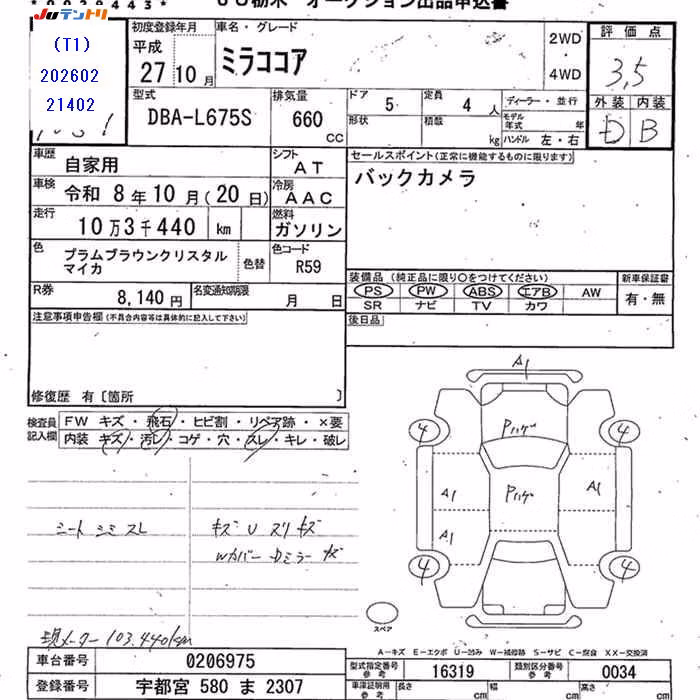 JUテントリ
(T1)
202602
21402
初度登録年月
平成
27 10 月
車名・グレード
ミラココア
2WD
・
4WD
評価点
3,5
外装 内装
D B
型式
DBA-L675S
排気量
660 CC
ドア 5
定員 4 人
形状
積載 kg
ディーラー・並行
モデル年式 年
ハンドル 左・右
車歴 自家用
シフト AT
車検 令和 8 年 10 月 (20 日)
冷房 AAC
走行 10 万 3 千 440 km
燃料 ガソリン
色 プラムブラウンクリスタル
マイカ
色替
色コード R59
R券 8,140 円
名変通知期限 月 日
セールスポイント(正常に機能するものに限ります)
バックカメラ
装備品 (純正品に限り○をつけてください)
PS PW ABS エアB AW
SR ナビ TV カワ
新車保証書
有・無
後日品
注意事項申告欄(不具合内容等は具体的に記入して下さい)
修復歴 有〔箇所 〕
検査員記入欄
FW キズ・飛石・ヒビ割・リペア跡・×要
内装 キズ・汚レ・コゲ・穴・スレ・キレ・破レ
シート シミ スレ
キズ U スリキズ
Wカバー Dミラー キズ
現メーター 103.440km
A1
4
4
Pハゲ
A1
Pハゲ
A1
A1
4
4
スペア
A-キズ E-エクボ U-凹み W-補修跡 S-サビ C-腐食 XX-交換済
車台番号 0206975
登録番号 宇都宮 580 ま 2307
型式指定番号参考 16319
類別区分番号参考 0034
車庫証明用参考 長さ cm 幅 cm 高さ cm